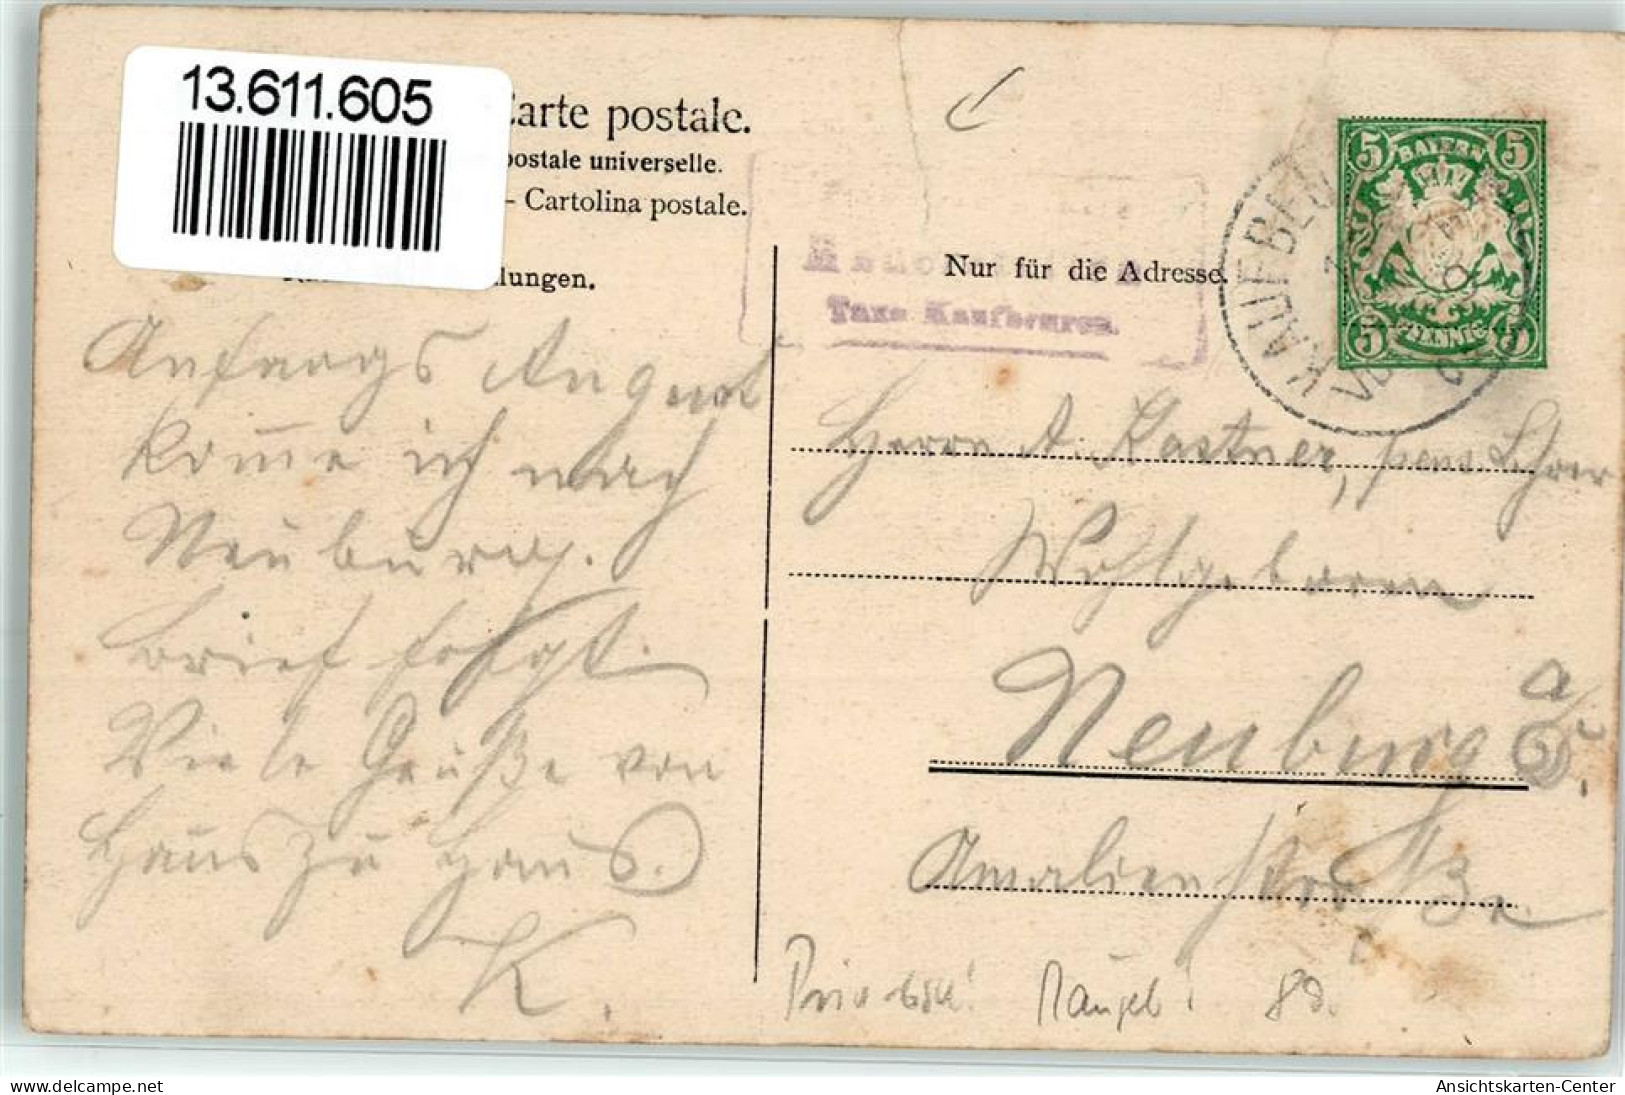 13.611.605
Carte postale.
postale universelle.
– Cartolina postale.
Nur für die Adresse.
lungen.
Taxe Kaufbeuren.
KAUFBEU
5 5
BAYERN
PFENNIG
5 5
Anfangs August
komme ich nach
Neuburg.
Brief folgt.
Viele Grüße von
Haus zu Haus.
K.
Herrn A. Kastner, pens. Lehrer
Wohlgeboren
Neuburg a/D.
Amalienstraße
Mängel!
delcampe.net
Ansichtskarten-Center